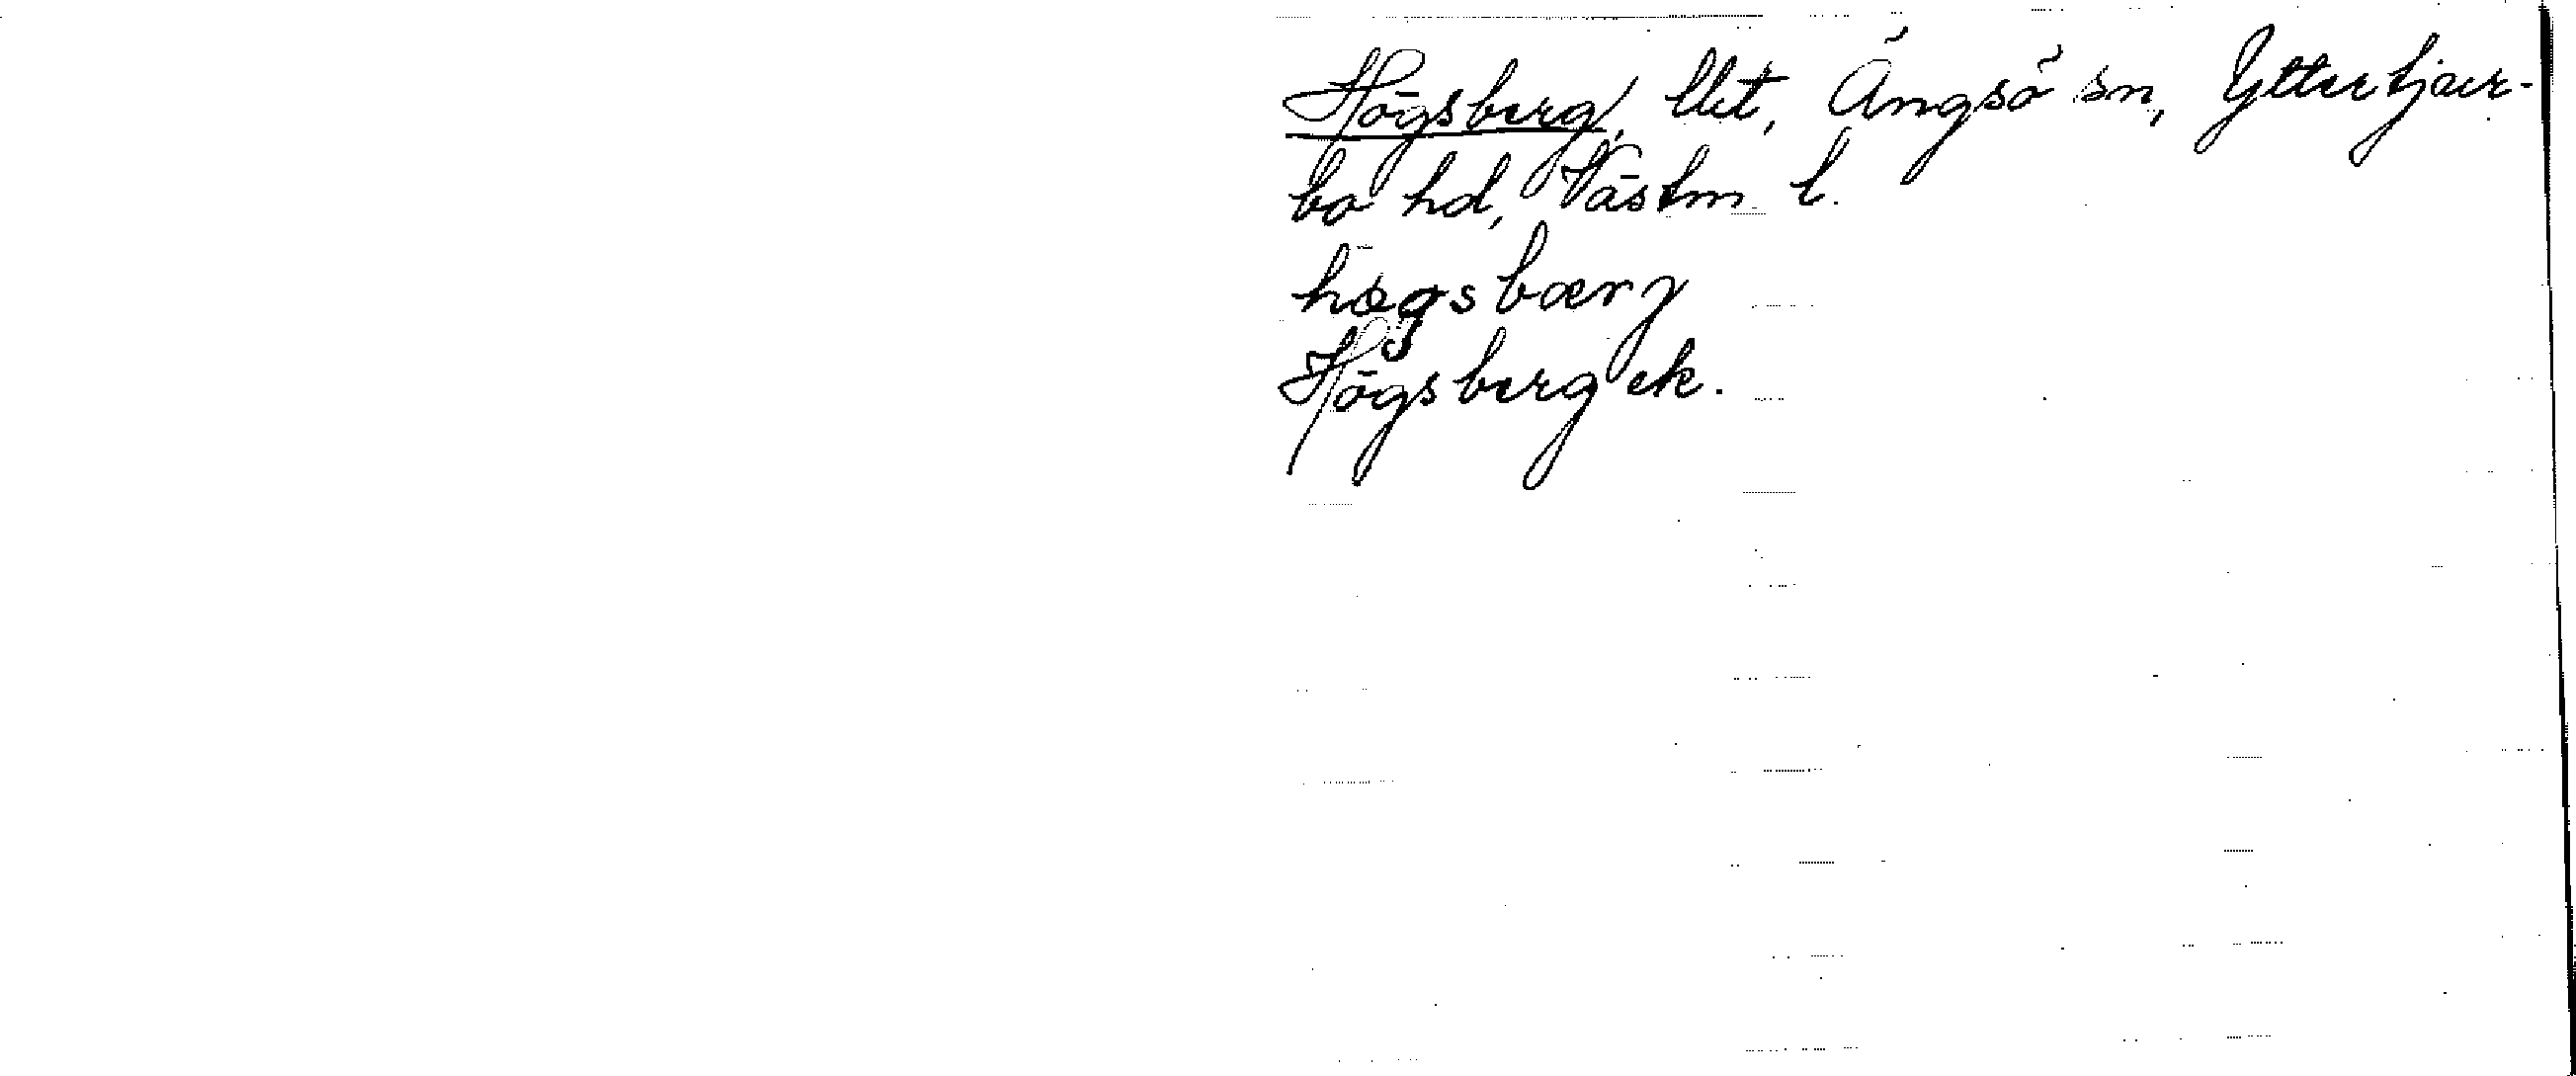 Högsberg, Ut, Ängsö sn, Yttertjur-
bo hd, Västm l.
høgsbærγ
Högsberg ek.